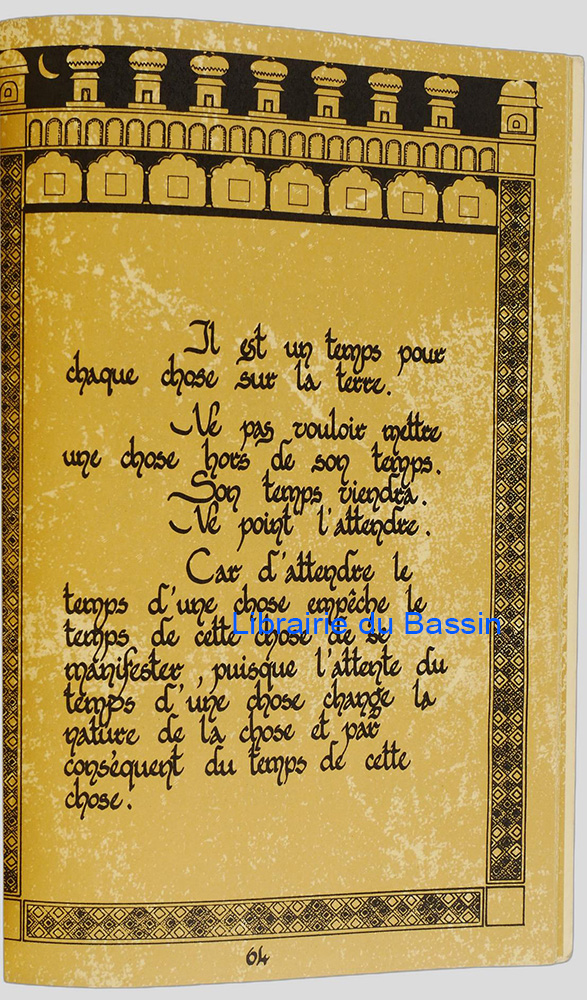 Il est un temps pour
chaque chose sur la terre.
Ne pas vouloir mettre
une chose hors de son temps.
Son temps viendra.
Ne point l'attendre.
Car d'attendre le
temps d'une chose empêche le
temps de cette chose de se
Librairie du Bassin
manifester, puisque l'attente du
temps d'une chose change la
nature de la chose et par
conséquent du temps de cette
chose.
64